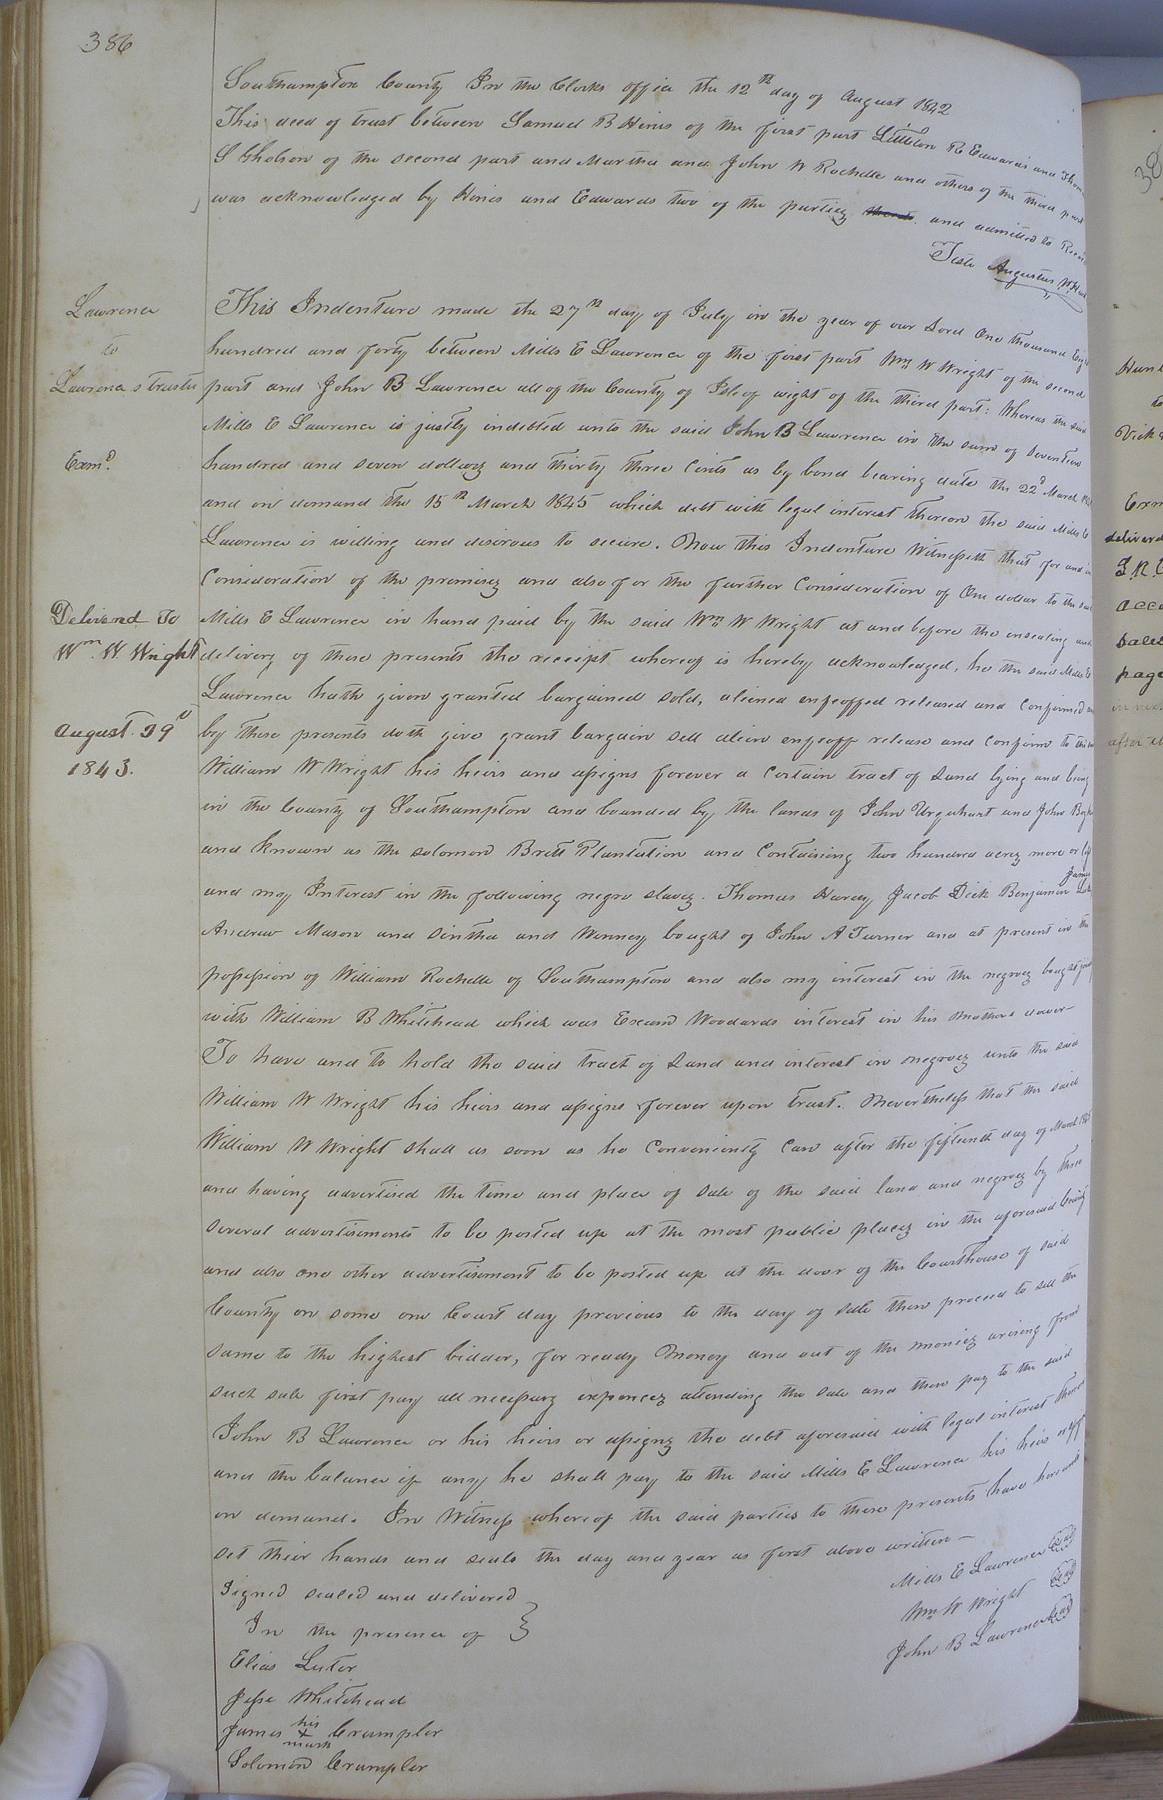 386
Southampton County In the Clerks office the 12th day of August 1842
This deed of trust between Samuel B Hines of the first part Littleton R Edwards and Thomas
S Gholson of the second part and Martha and John W Rochelle and others of the third part
was acknowledged by Hines and Edwards two of the parties and admitted to
Teste Augustus
Lawrence
to
Lawrence's trustee
Exmd
Delivered To
Wm. W. Wright
August 29d
1843.
This Indenture made the 27th day of July in the year of our Lord One thousand
hundred and forty between Mills E Lawrence of the first part Wm W Wright of the second
part and John B Lawrence all of the County of Isle of wight of the third part: Whereas the said
Mills E Lawrence is justly indebted unto the said John B Lawrence in the sum of seventeen
hundred and seven dollars and thirty three Cents as by bond bearing date the 22d March
and on demand the 15th March 1845 which debt with legal interest thereon the said Mills E
Lawrence is willing and desirous to secure. Now this Indenture Witnesseth that for and in
Consideration of the premises and also for the further Consideration of One dollar to the said
Mills E Lawrence in hand paid by the said Wm W Wright at and before the ensealing and
delivery of these presents the receipt whereof is hereby acknowledged, he the said Mills E
Lawrence hath given granted bargained sold, aliened enfeoffed released and Confirmed and
by these presents doth give grant bargain sell alien enfeoff release and Confirm to the said
William W Wright his heirs and assigns forever a Certain tract of Land lying and being
in the County of Southampton and bounded by the lands of John Urquhart and John
and known as the solomon Britt Plantation and Containing two hundred acres more or less
and my Interest in the following negro slaves. Thomas Harvey Jacob Dick Benjamin James
Andrew Mason and Sintha and Winney bought of John A Turner and at present in the
possession of William Rochelle of Southampton and also my interest in the negroes bought
with William B Whitehead which was Exum Woodards interest in his mothers dower
To have and to hold the said tract of Land and interest in negroes unto the said
William W Wright his heirs and assigns forever upon trust. Nevertheless that the said
William W Wright shall as soon as he Conveniently Can after the fifteenth day of March
and having advertised the time and place of sale of the said land and negroes by three
several advertisements to be posted up at the most public places in the aforesaid County
and also one other advertisement to be posted up at the door of the Courthouse of said
County on some one Court day previous to the day of sale then proceed to sell the
same to the highest bidder, for ready Money and out of the monies arising from
such sale first pay all necessary expences attending the sale and then pay to the said
John B Lawrence or his heirs or assigns the debt aforesaid with legal interest thereon
and the balance if any he shall pay to the said Mills E Lawrence his heirs
on demand. In Witness whereof the said parties to these presents have hereunto
set their hands and seals the day and year as first above written
Signed sealed and delivered
In the presence of
Elias Luter
Jesse Whitehead
James his + mark Crumpler
Solomon Crumpler
Mills E Lawrence Seal
Wm W Wright Seal
John B Lawrence Seal